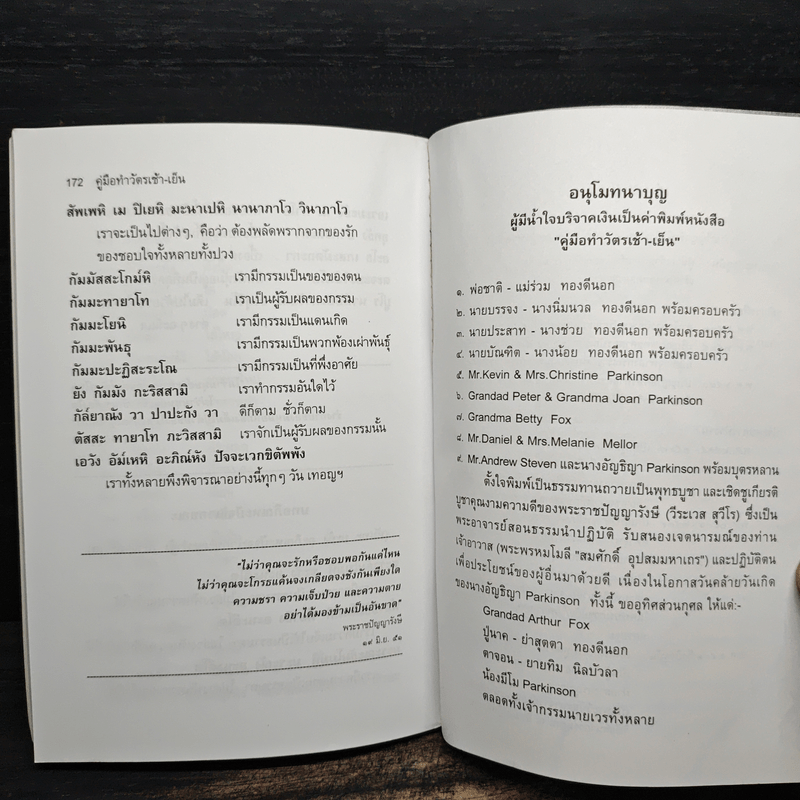 172 คู่มือทำวัตรเช้า-เย็น
สัพเพหิ เม ปิเยหิ มะนาเปหิ นานาภาโว วินาภาโว
เราจะเป็นไปต่างๆ, คือว่า ต้องพลัดพรากจากของรัก
ของชอบใจทั้งหลายทั้งปวง
กัมมัสสะโกม๎หิ เรามีกรรมเป็นของของตน
กัมมะทายาโท เราเป็นผู้รับผลของกรรม
กัมมะโยนิ เรามีกรรมเป็นแดนเกิด
กัมมะพันธุ เรามีกรรมเป็นพวกพ้องเผ่าพันธุ์
กัมมะปะฏิสะระโณ เรามีกรรมเป็นที่พึ่งอาศัย
ยัง กัมมัง กะริสสามิ เราทำกรรมอันใดไว้
กัล๎ยาณัง วา ปาปะกัง วา ดีก็ตาม ชั่วก็ตาม
ตัสสะ ทายาโท ภะวิสสามิ เราจักเป็นผู้รับผลของกรรมนั้น
เอวัง อัม๎เหหิ อะภิณ๎หัง ปัจจะเวกขิตัพพัง
เราทั้งหลายพึงพิจารณาอย่างนี้ทุกๆ วัน เทอญฯ
"ไม่ว่าคุณจะรักหรือชอบพอกันแค่ไหน
ไม่ว่าคุณจะโกรธแค้นจงเกลียดจงชังกันเพียงใด
ความชรา ความเจ็บป่วย และความตาย
อย่าได้มองข้ามเป็นอันขาด"
พระราชปัญญารังษี
๑๙ มิ.ย. ๕๑
อนุโมทนาบุญ
ผู้มีน้ำใจบริจาคเงินเป็นค่าพิมพ์หนังสือ
"คู่มือทำวัตรเช้า-เย็น"
๑. พ่อชาติ - แม่ร่วม ทองดีนอก
๒. นายบรรจง - นางนิ่มนวล ทองดีนอก พร้อมครอบครัว
๓. นายประสาท - นางช่วย ทองดีนอก พร้อมครอบครัว
๔. นายบัณฑิต - นางน้อย ทองดีนอก พร้อมครอบครัว
๕. Mr.Kevin & Mrs.Christine Parkinson
๖. Grandad Peter & Grandma Joan Parkinson
๗. Grandma Betty Fox
๘. Mr.Daniel & Mrs.Melanie Mellor
๙. Mr.Andrew Steven และนางอัญธิญา Parkinson พร้อมบุตรหลาน
ตั้งใจพิมพ์เป็นธรรมทานถวายเป็นพุทธบูชา และเชิดชูเกียรติ
บูชาคุณงามความดีของพระราชปัญญารังษี (วีระเวส สุวีโร) ซึ่งเป็น
พระอาจารย์สอนธรรมนำปฏิบัติ รับสนองเจตนารมณ์ของท่าน
เจ้าอาวาส (พระพรหมโมลี "สมศักดิ์ อุปสมมหาเถร") และปฏิบัติตน
เพื่อประโยชน์ของผู้อื่นมาด้วยดี เนื่องในโอกาสวันคล้ายวันเกิด
ของนางอัญธิญา Parkinson ทั้งนี้ ขออุทิศส่วนกุศล ให้แด่:-
Grandad Arthur Fox
ปู่นาค - ย่าสุตตา ทองดีนอก
ตาจอน - ยายทิม นิลบัวลา
น้องมีโม Parkinson
ตลอดทั้งเจ้ากรรมนายเวรทั้งหลาย